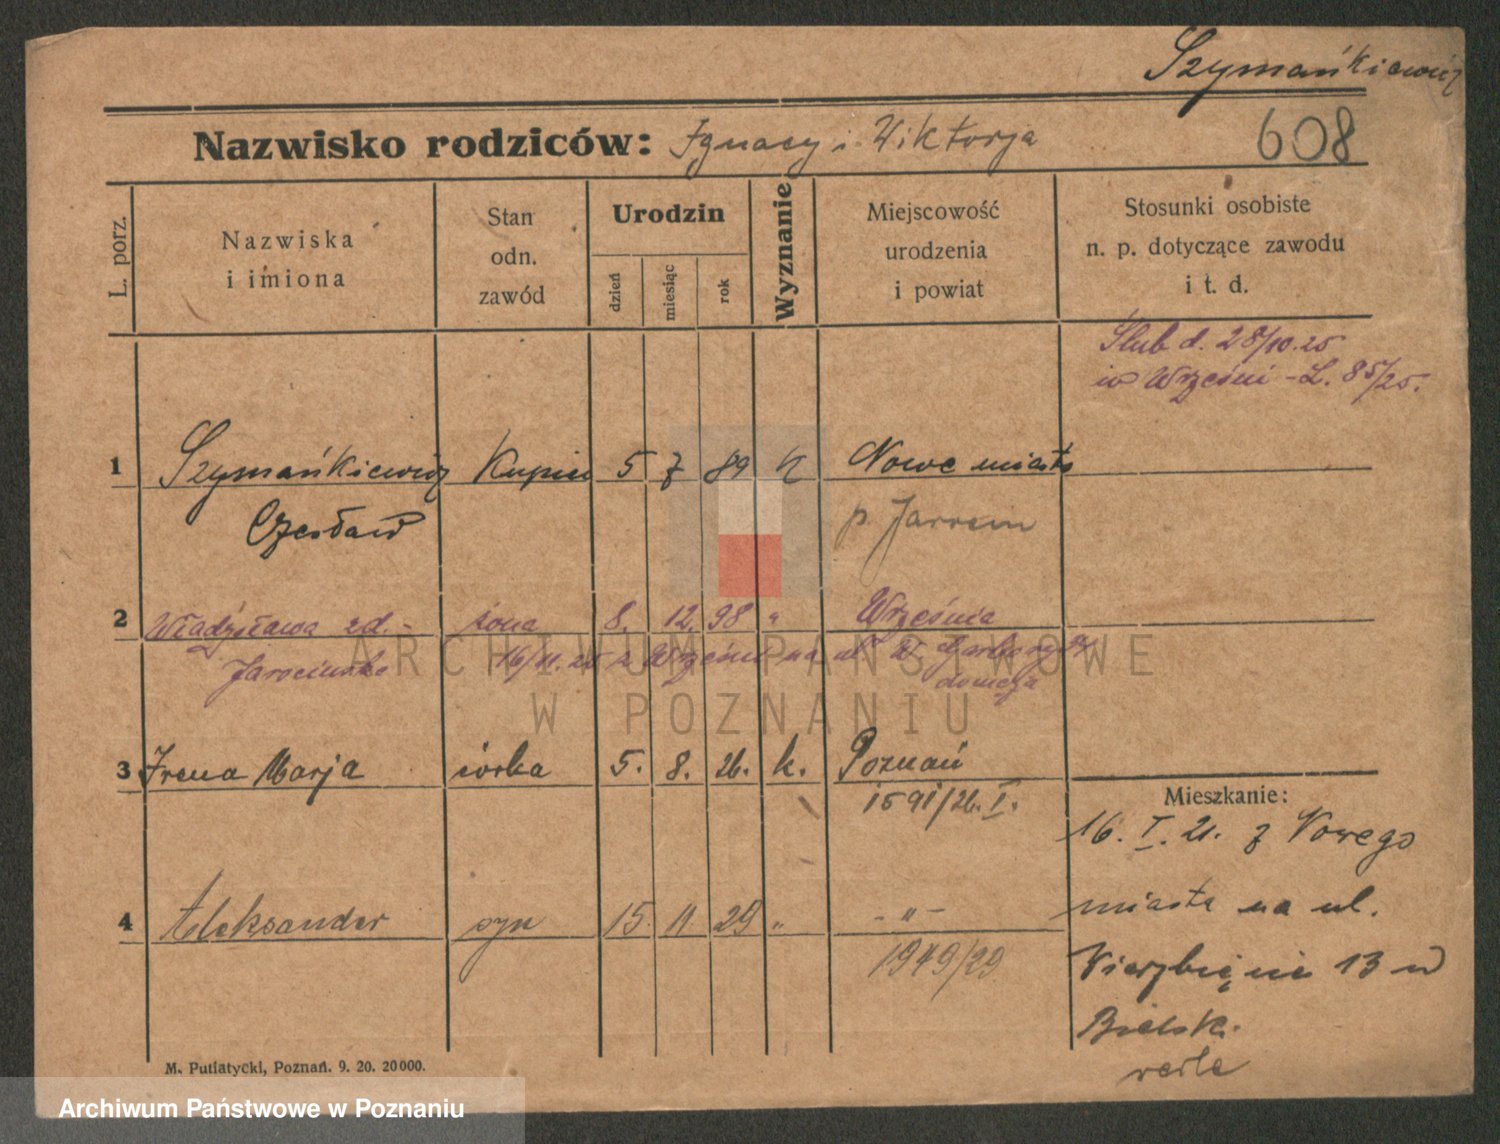 Szymańkiewicz
Nazwisko rodziców: Ignacy i Wiktorja
608
L. porz.
Nazwiska
i imiona
Stan
odn.
zawód
Urodzin
dzień
miesiąc
rok
Wyznanie
Miejscowość
urodzenia
i powiat
Stosunki osobiste
n. p. dotyczące zawodu
i t. d.
Ślub d. 28/10.25
w Wrześni - L. 85/25.
1 Szymańkiewicz Kupiec 5 7 89 k Nowe miasto
Czesław p. Jarocin
2 Władysława zd. - żona 8. 12. 98 " Września
Jarocińska 16/11.25 z Wrześni na ul
3 Irena Marja córka 5. 8. 26. k. Poznań
1591/26. I.
Mieszkanie:
16. I. 21. z Nowego
miasta na ul.
Wierzbięcie 13 u
Bielski.
4 Aleksander syn 15. 11 29 " - " -
1949/29
M. Putiatycki, Poznań. 9. 20. 20000.
ARCHIWUM PAŃSTWOWE
W POZNANIU
Archiwum Państwowe w Poznaniu